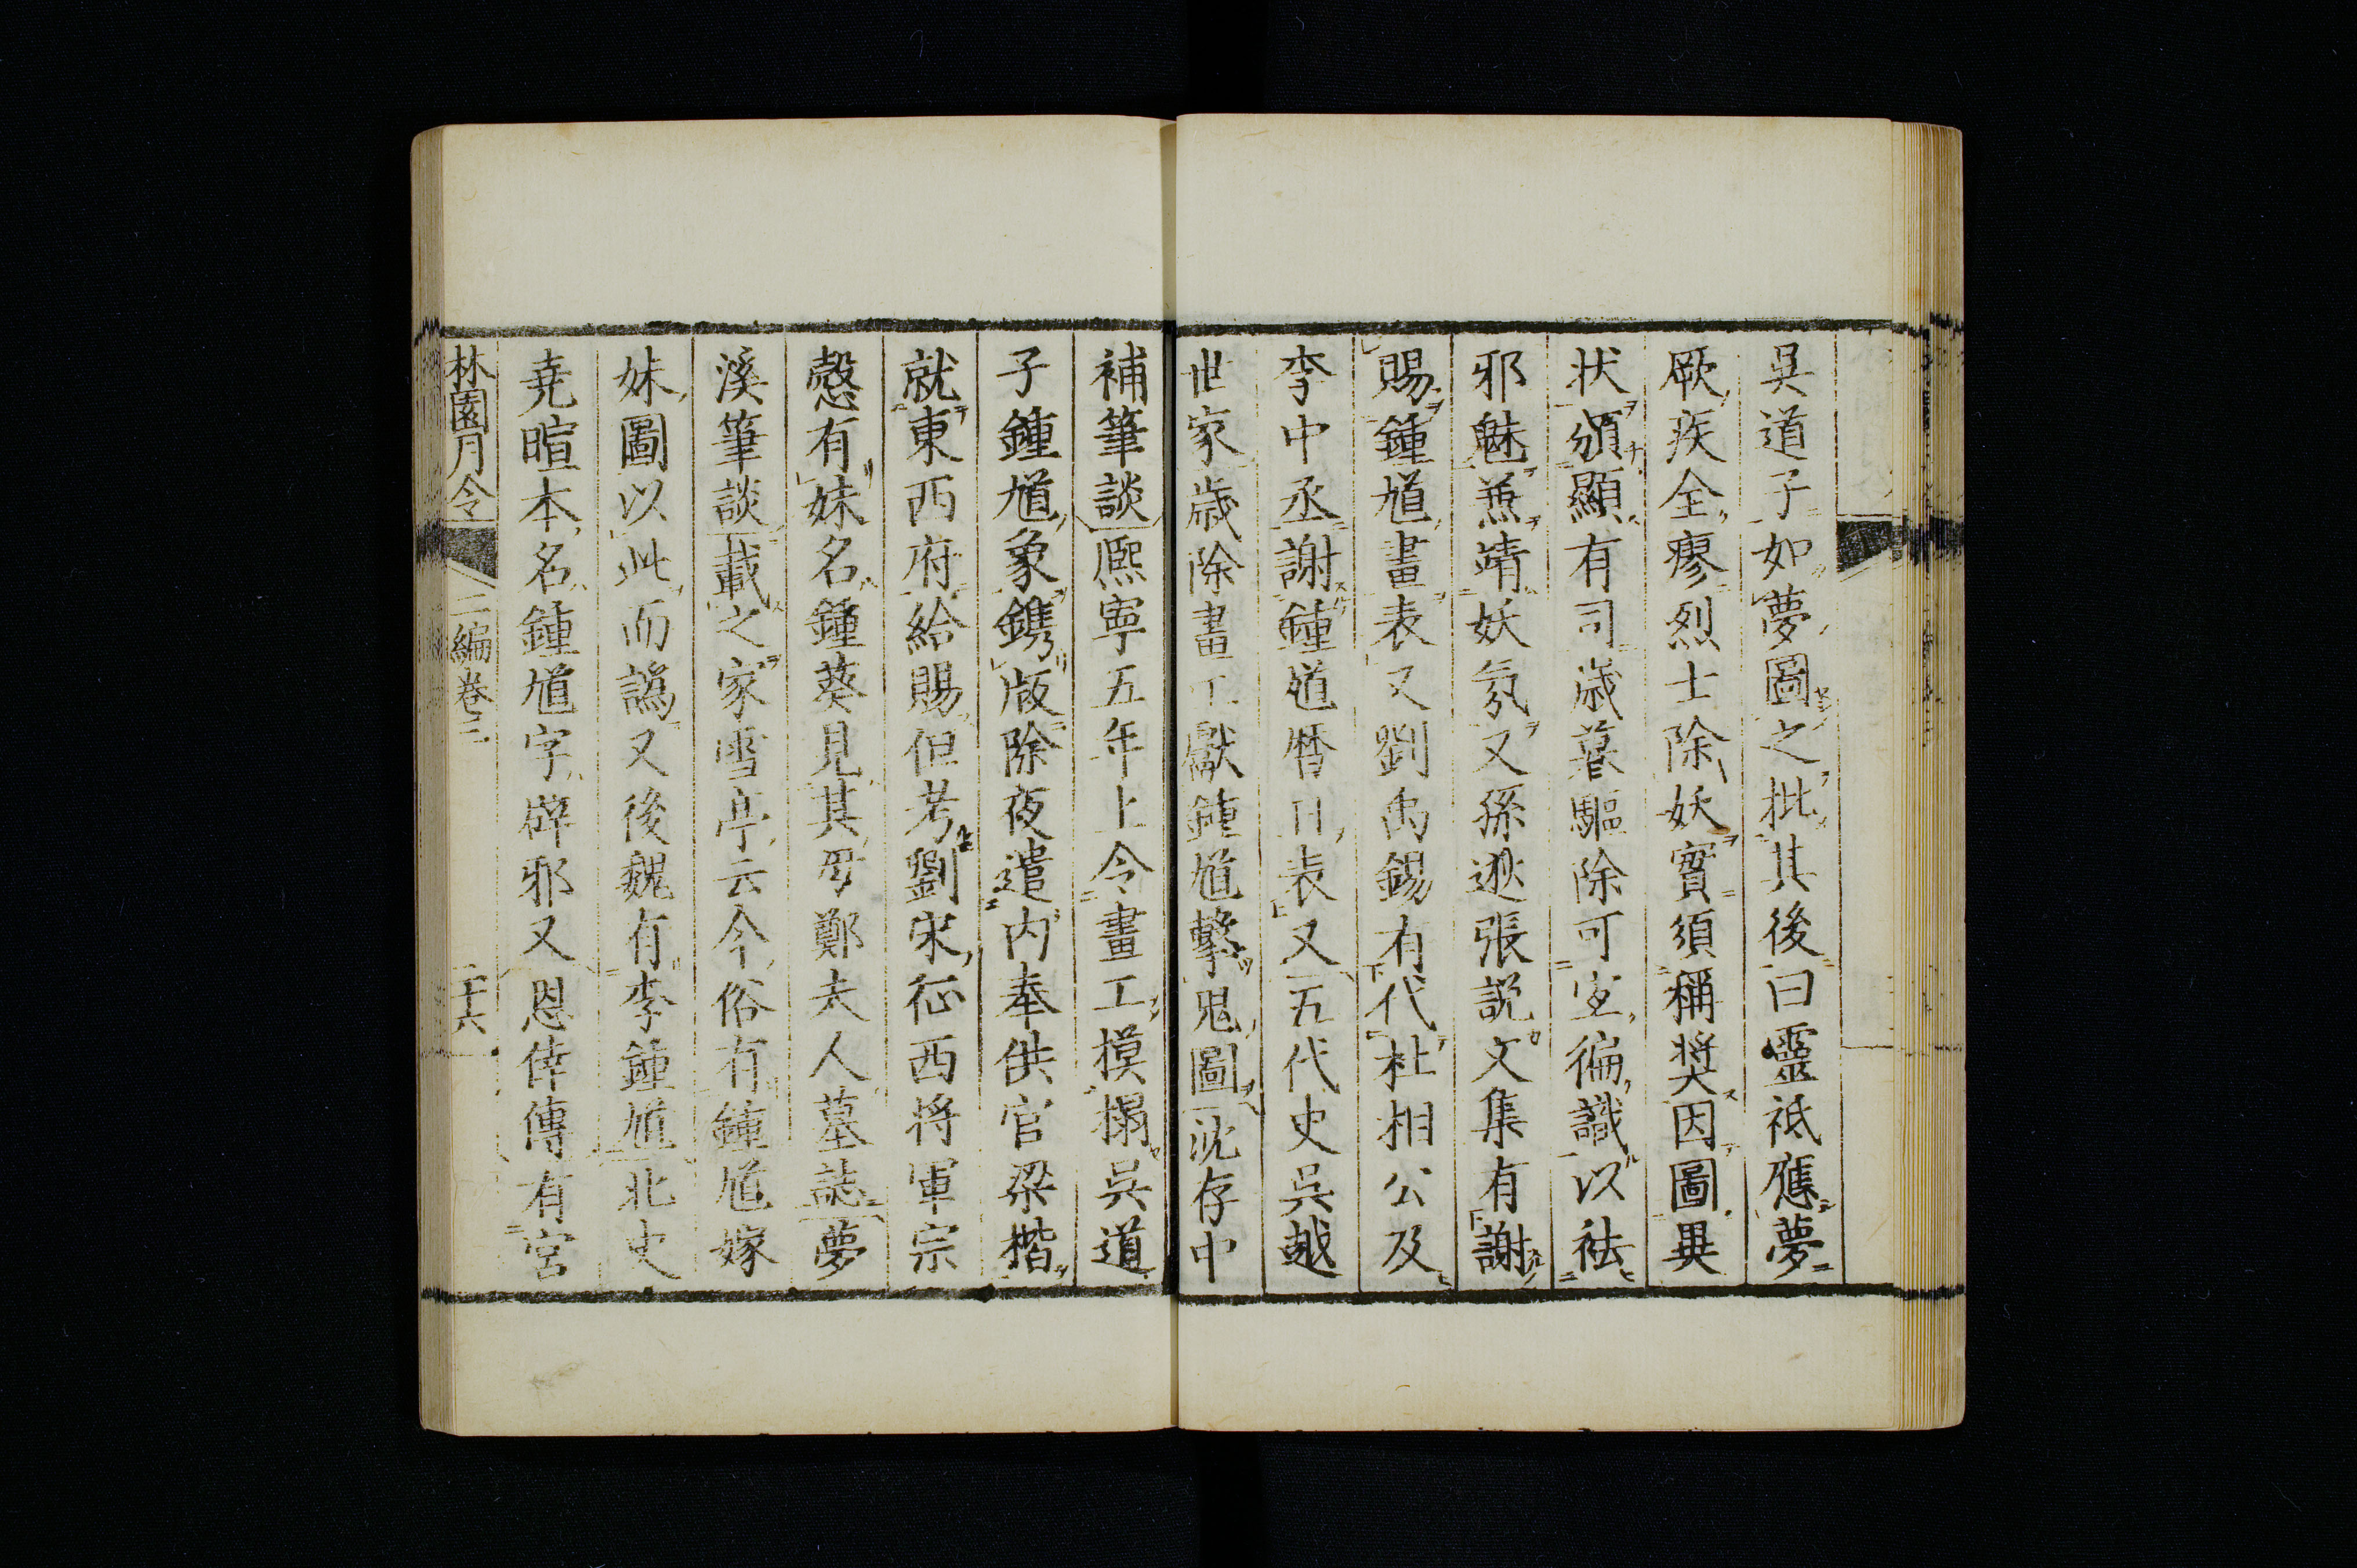 吳道子如夢圖之批其後曰靈祗應夢
厥疾全瘳烈士除妖實須稱奬因圖異
状頒顯有司歳暮驅除可宐徧識以祛
邪魅兼靖妖氛又孫逖張説文集有謝
賜鍾馗畫表又劉禹錫有代杜相公及
李中丞謝鍾馗暦日表又五代史吳越
世家歳除畫工獻鍾馗擊鬼圖沈存中
補筆談熈寧五年上令畫工摸搨吳道
子鍾馗象鐫版除夜遣内奉供官梁楷
就東西府給賜但考劉宋征西将軍宗
慤有妹名鍾葵見其母鄭夫人墓誌夢
溪筆談載之家雪亭云今俗有鍾馗嫁
妹圖以此而譌又後魏有李鍾馗北史
堯暄本名鍾馗字辟邪又恩倖傳有宮
林園月令 二編卷三 二十六